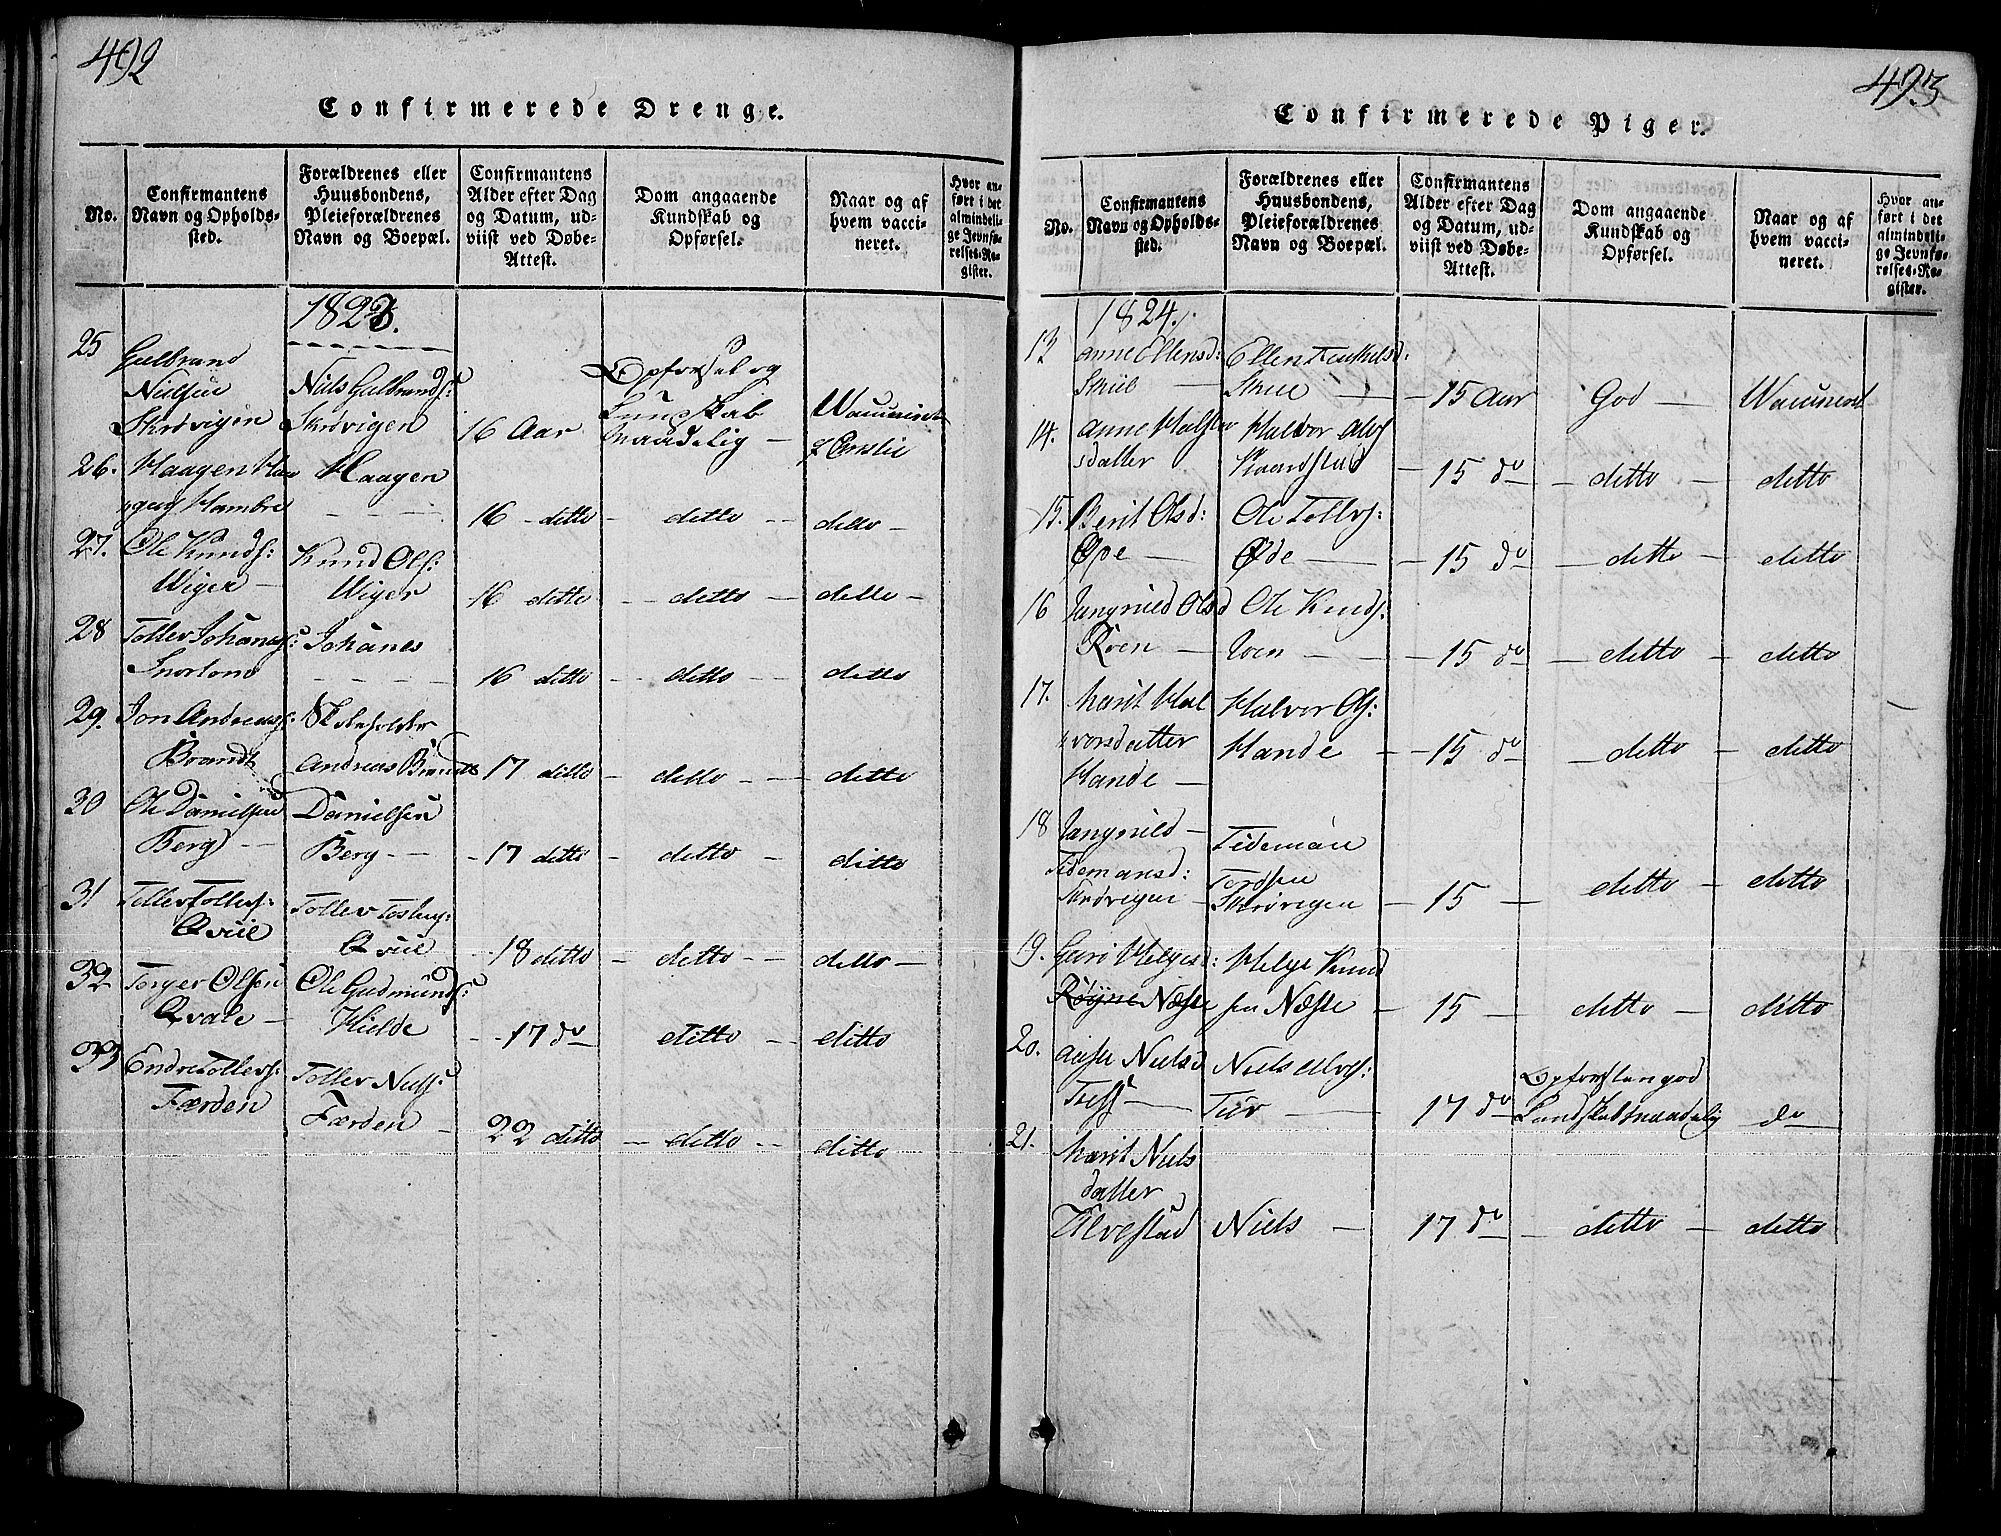 492
Confirmerede Drenge.
No.
Confirmantens
Navn og Opholds-
sted.
Forældrenes eller
Huusbondens,
Pleieforældrenes
Navn og Boepæl.
Confirmantens
Alder efter Dag
og Datum, ud-
viist ved Døbe-
Attest.
Dom angaaende
Kundskab og
Opførsel.
Naar og af
hvem vacci-
neret.
Hvor an-
ført i det
almindeli-
ge Jevnfø-
relses-Re-
gister.
1823.
25
Gulbrand
Nielsen
Skrøvigen
Niels Gulbrands:
Skrøvigen
16 Aar
Opførsel og
Kundskab
maadelig —
26.
Haagen Haa
gens Hambre
Haagen
— — —
16 - ditto - ditto - - ditto -
27.
Ole Knuds:
Wiger —
Knud Ols:
Wiger
16 ditto - - ditto - ditto -
28
Toller Johanes:
Snortom
Johanes
— — — —
16 ditto - - ditto - - ditto
29.
Jon Andreas:
Brandt
Skoleholder
Andreas Brandt
17 ditto - ditto - - ditto
30
Ole Danielsen
Berg - -
Danielsen
Berg - -
- 17 ditto - ditto - ditto
31
Toller Tollefs:
Qviie
Toller
Qviie
- 18 ditto - ditto - - ditto -
32
Torger Olsen
Qvale —
Ole Gudmunds:
Kielde
- - 17 do ditto - ditto
33
Endre Tollers:
Færden
Toller Niels:
Færden —
22 ditto - ditto - - ditto
493
Confirmerede Piger.
No.
Confirmantens
Navn og Opholds-
sted.
Forældrenes eller
Huusbondens,
Pleieforældrenes
Navn og Boepæl.
Confirmantens
Alder efter Dag
og Datum, ud-
viist ved Døbe-
Attest.
Dom angaaende
Kundskab og
Opførsel.
Naar og af
hvem vacci-
neret.
Hvor an-
ført i det
almindeli-
ge Jevnfø-
relses-Re-
gister.
1824.
13
Anne Ellensd:
Ellen
- 15 Aar God —
14.
Anne Hal
sdatter
Halvor
- 15 do - ditto - ditto
15.
Berit Olsd:
Øde —
Ole Tollefs:
Øde —
- 15 do - ditto - ditto
16
Jangnild Olsd
Roen —
Ole Knuds:
Roen —
- 15 do - ditto - ditto
17.
Marit Hal
vorsdatter
Hande —
Halvor Ols:
Hande -
- 15 do - ditto - ditto
18
Jangnild —
Tidemansd:
Skrøvigen —
Tideman
Tordsen
Skrøvigen -
15 — ditto - ditto
19.
Guro Helgesd:
Røyne Næste
Helge Knud
sen Næste -
15 — ditto - ditto
20.
Niels
17 do
Opførslen god
Kundskab maadelig
do
21.
Marit Niels
datter
Alvestad
Niels —
17 do - ditto - ditto